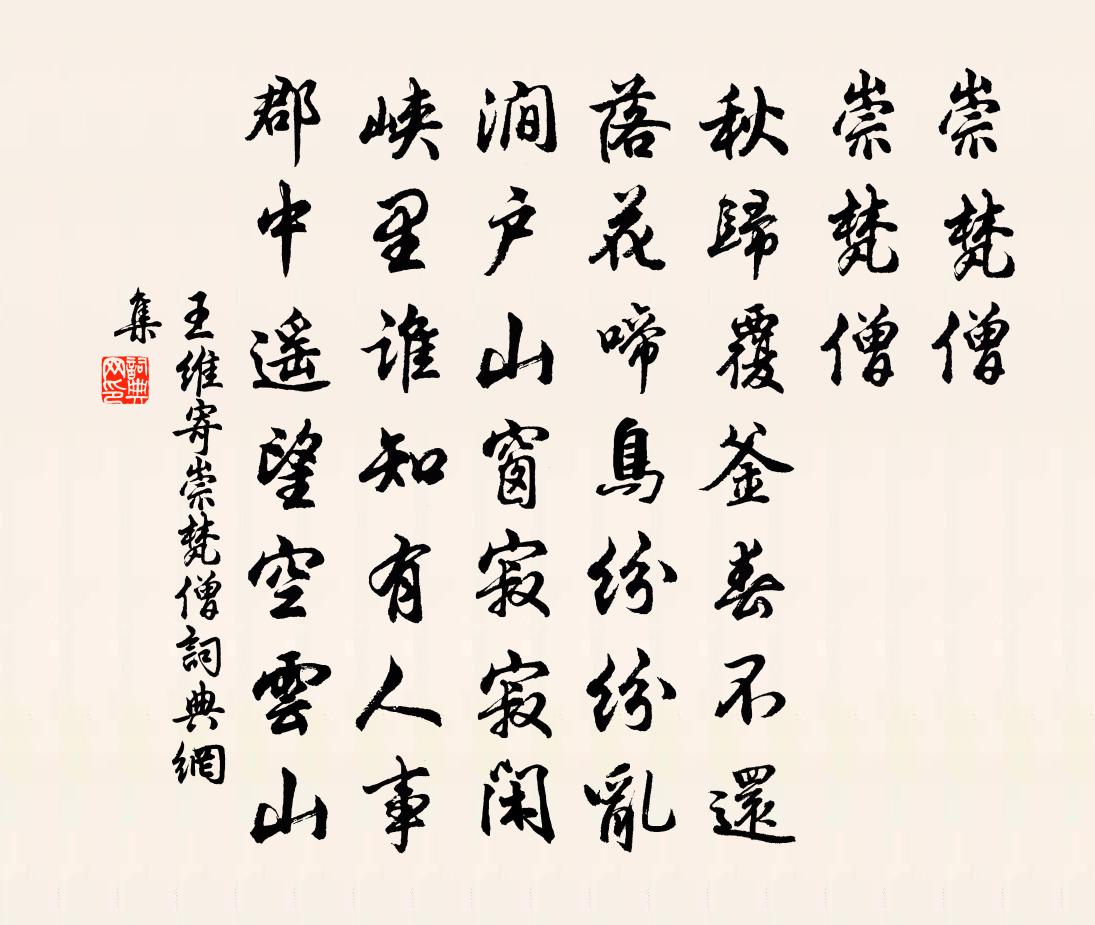 崇梵僧
崇梵僧
秋歸覆釜春不還
落花啼鳥紛紛亂
澗户山窗寂寂閑
峡里誰知有人事
郡中遥望空雲山
王維寄崇梵僧詞典網
集
詞典
网印